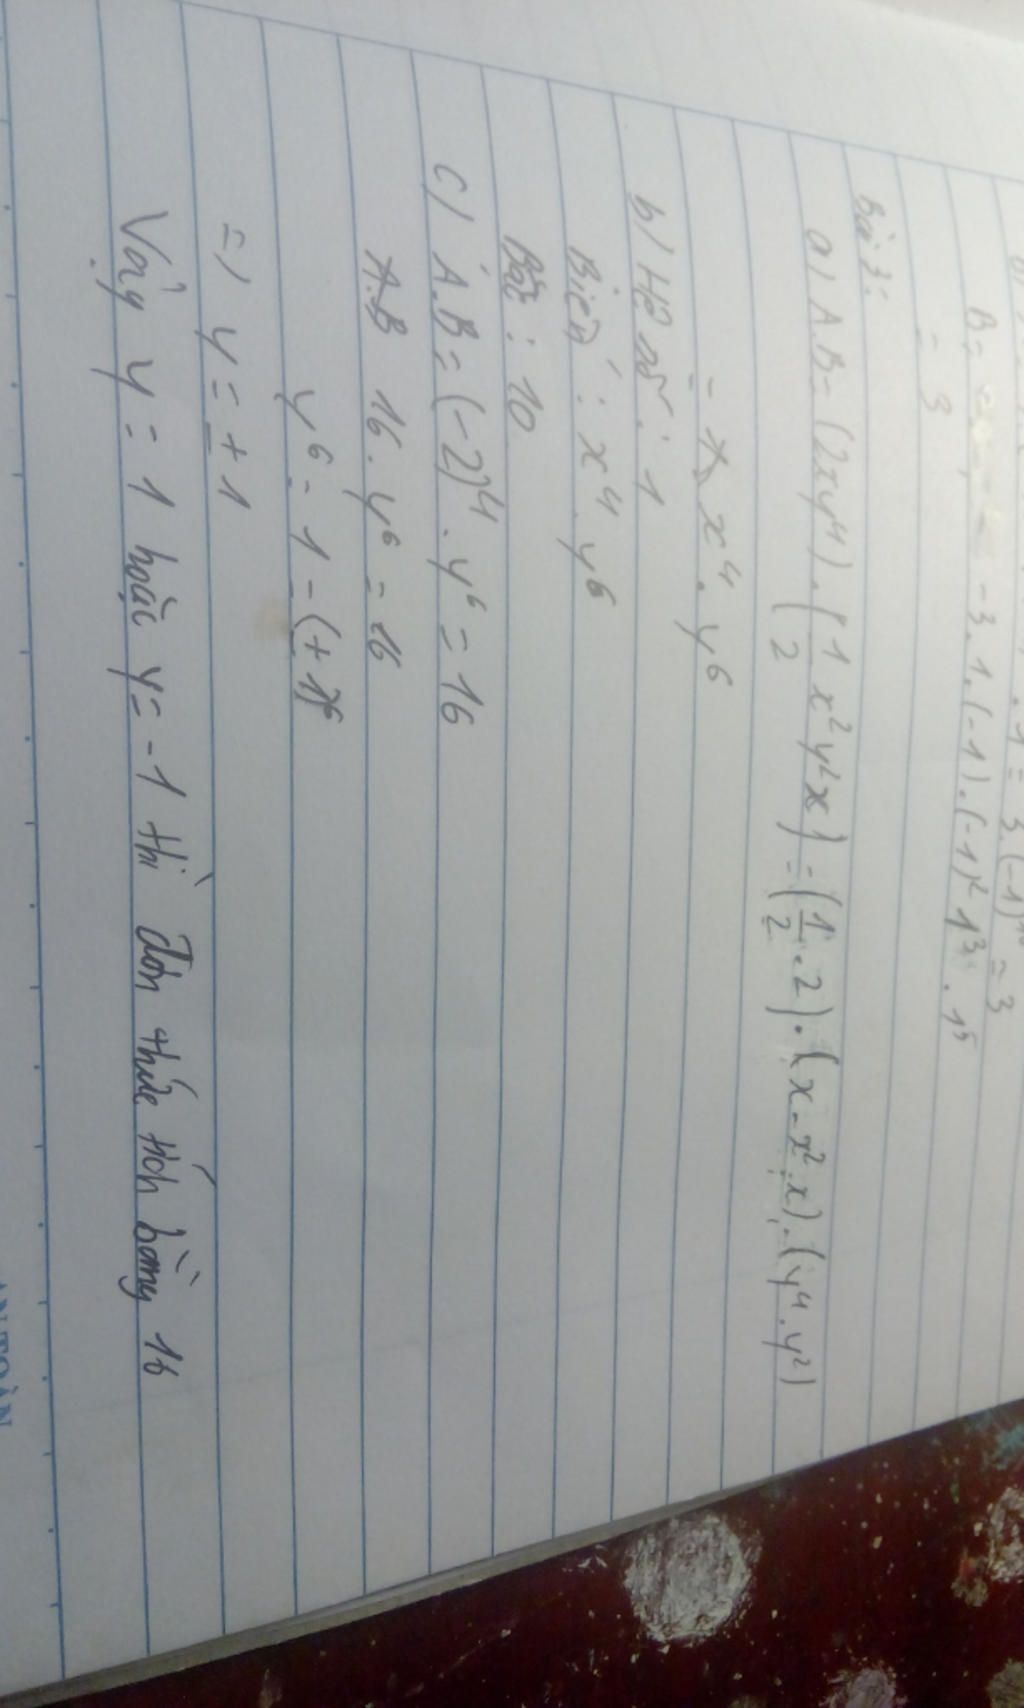 B = -3.1.(-1).(-1)² 1³ . 1⁵
= 3
Bài 3:
a) A.B = (2xy⁴).(1/2 x²y²x) = (1/2 . 2).(x.x².x).(y⁴.y²)
= x⁴.y⁶
b) Hệ số: 1
Biến: x⁴.y⁶
Bậc: 10
c) A.B = (-2)⁴.y⁶ = 16
16.y⁶ = 16
y⁶ = 1 = (±1)⁶
=) y = ±1
Vậy y = 1 hoặc y = -1 thì đơn thức tích bằng 16